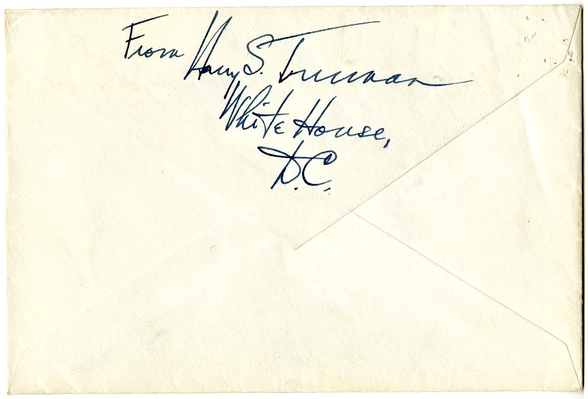 From Harry S. Truman
White House,
D.C.